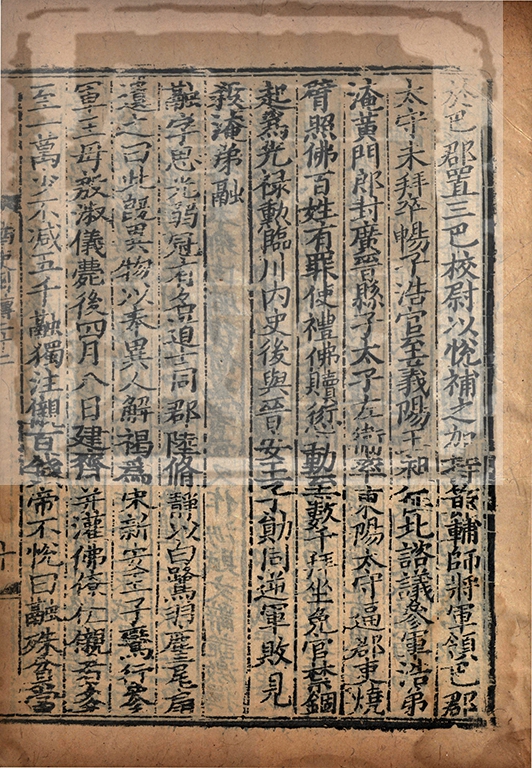 於巴郡置三巴校尉以悅補之加持節輔師將軍領巴郡
太守未拜卒暢子浩官至義陽王昶征北諮議參軍浩弟
淹黃門郎封廣晉縣子太子左衛率東陽太守逼郡吏燒
臂照佛百姓有罪使禮佛贖愆動至數千拜坐免官禁錮
起爲光祿勳臨川內史後與晉安王子勛同逆軍敗見
殺淹弟融
融字思光弱冠有名道士同郡陸脩靜以白鷺羽麈尾扇
遺之曰此旣異物以奉異人解褐爲宋新安王子鸞行參
軍王母殷淑儀薨後四月八日建齋并灌佛僚佐儭者多
至一萬少不減五千融獨注儭百錢帝不悅曰融殊貧當